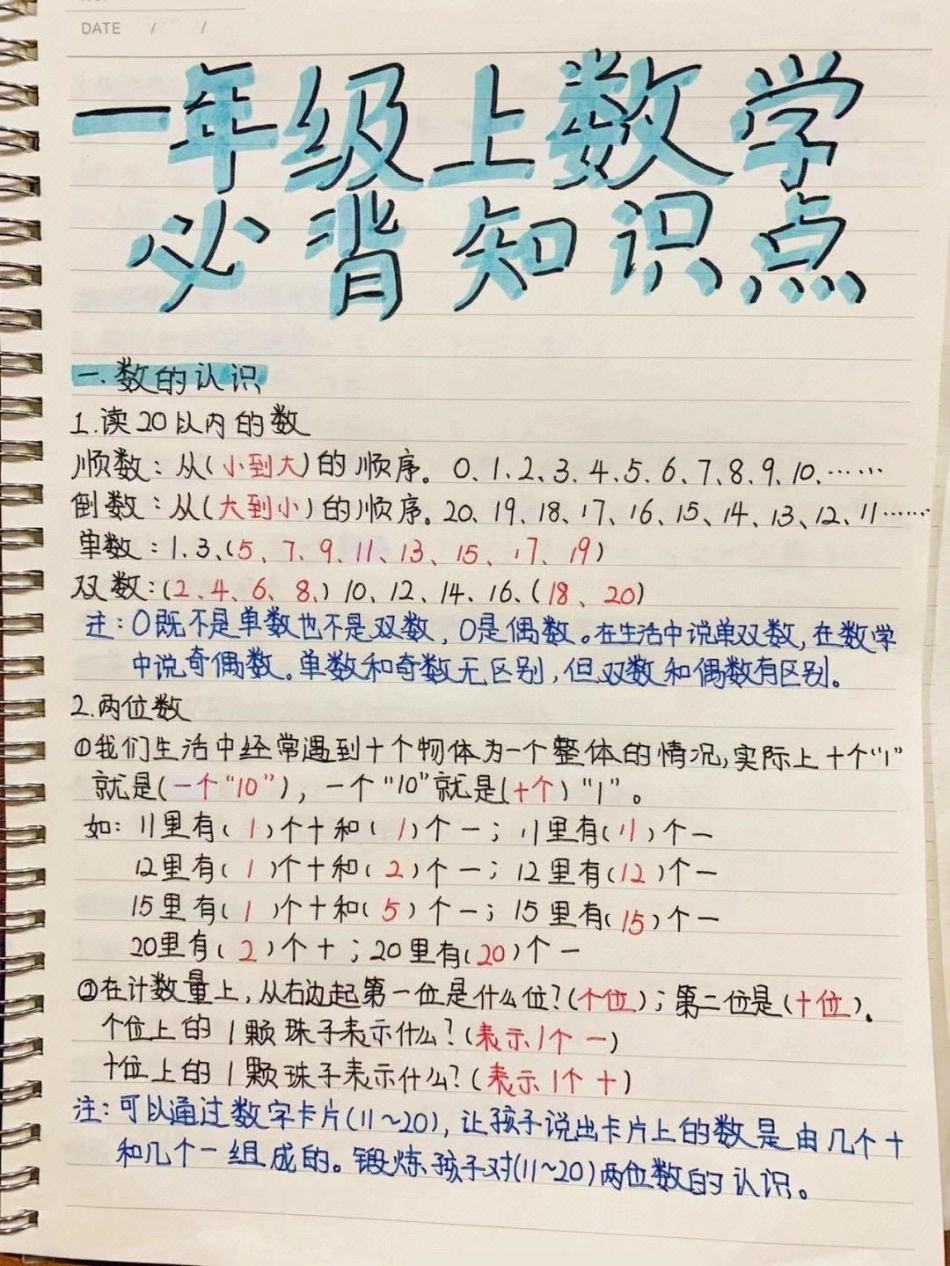 DATE / /
一年级上数学
必背知识点
一.数的认识
1.读20以内的数
顺数：从(小到大)的顺序。0、1、2、3、4、5、6、7、8、9、10、……
倒数：从(大到小)的顺序。20、19、18、17、16、15、14、13、12、11……
单数：1、3、(5、7、9、11、13、15、17、19)
双数：(2、4、6、8、) 10、12、14、16、(18、20)
注：0既不是单数也不是双数，0是偶数。在生活中说单双数，在数学
中说奇偶数。单数和奇数无区别，但双数和偶数有区别。
2.两位数
①我们生活中经常遇到十个物体为一个整体的情况，实际上十个“1”
就是(一个“10”)，一个“10”就是(十个)“1”。
如：11里有( 1 )个十和( 1 )个一；11里有(11)个一
12里有( 1 )个十和( 2 )个一；12里有(12)个一
15里有( 1 )个十和( 5 )个一；15里有(15)个一
20里有( 2 )个十；20里有(20)个一
②在计数量上，从右边起第一位是什么位？(个位)；第二位是(十位)。
个位上的1颗珠子表示什么？(表示1个一)
十位上的1颗珠子表示什么？(表示1个十)
注：可以通过数字卡片(11~20)，让孩子说出卡片上的数是由几个十
和几个一组成的。锻炼孩子对(11~20)两位数的认识。